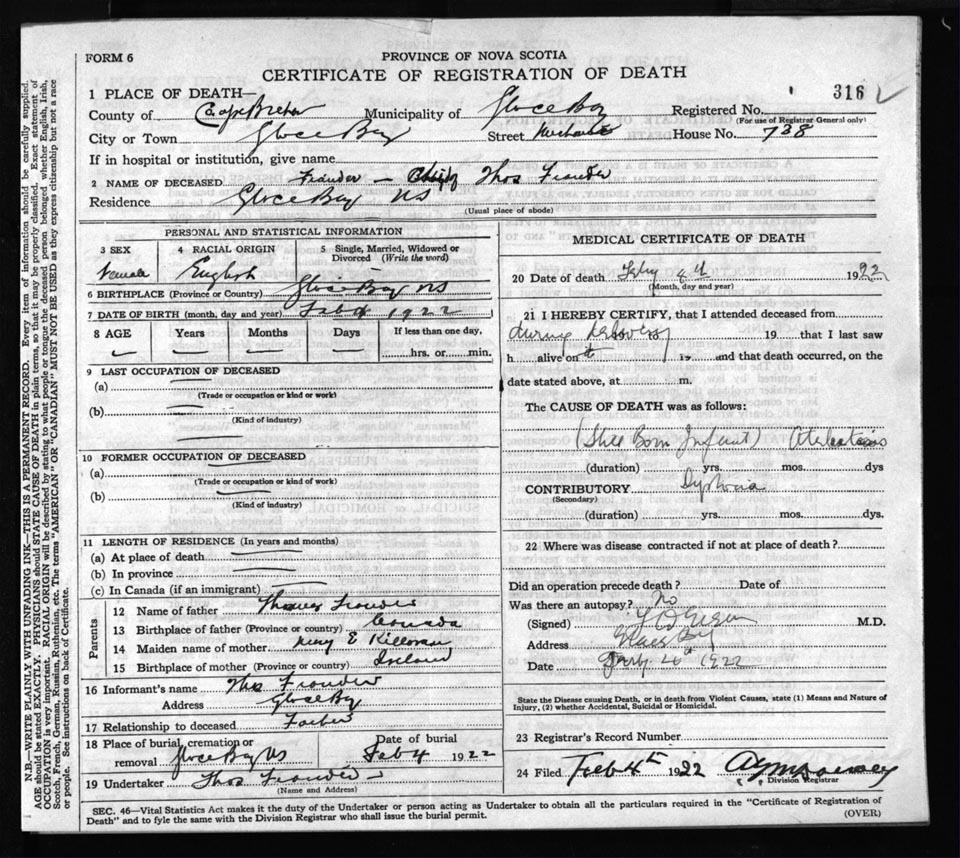 FORM 6
PROVINCE OF NOVA SCOTIA
CERTIFICATE OF REGISTRATION OF DEATH
1 PLACE OF DEATH—
316
County of Cape Breton Municipality of Glace Bay Registered No.
(For use of Registrar General only)
City or Town Glace Bay Street House No. 738
If in hospital or institution, give name
2 NAME OF DECEASED Thos
Residence Glace Bay NS
(Usual place of abode)
PERSONAL AND STATISTICAL INFORMATION
3 SEX 4 RACIAL ORIGIN 5 Single, Married, Widowed or Divorced (Write the word)
Female English
6 BIRTHPLACE (Province or Country) Glace Bay NS
7 DATE OF BIRTH (month, day and year) Feb 4 1922
8 AGE Years Months Days If less than one day,
hrs. or min.
9 LAST OCCUPATION OF DECEASED
(a)
(Trade or occupation or kind or work)
(b)
(Kind of industry)
10 FORMER OCCUPATION OF DECEASED
(a)
(Trade or occupation or kind of work)
(b)
(Kind of industry)
11 LENGTH OF RESIDENCE (In years and months)
(a) At place of death
(b) In province
(c) In Canada (if an immigrant)
Parents
12 Name of father Thomas
13 Birthplace of father (Province or country) Canada
14 Maiden name of mother E
15 Birthplace of mother (Province or country) Ireland
16 Informant's name Thos
Address Glace Bay
17 Relationship to deceased Father
18 Place of burial, cremation or removal Glace Bay NS Date of burial Feb 4 1922
19 Undertaker Thos
(Name and Address)
MEDICAL CERTIFICATE OF DEATH
20 Date of death 1922
(Month, day and year)
21 I HEREBY CERTIFY, that I attended deceased from
during delivery 19 that I last saw
h alive on 19 and that death occurred, on the
date stated above, at m.
The CAUSE OF DEATH was as follows:
(Still Born Infant)
(duration) yrs. mos. dys
CONTRIBUTORY
(Secondary)
(duration) yrs. mos. dys.
22 Where was disease contracted if not at place of death?
Did an operation precede death? Date of
Was there an autopsy? No
(Signed) M.D.
Address Glace Bay
Date 1922
State the Disease causing Death, or in death from Violent Causes, state (1) Means and Nature of Injury, (2) whether Accidental, Suicidal or Homicidal.
23 Registrar's Record Number
24 Filed Feb 4th 1922
Division Registrar
SEC. 46—Vital Statistics Act makes it the duty of the Undertaker or person acting as Undertaker to obtain all the particulars required in the "Certificate of Registration of
Death" and to fyle the same with the Division Registrar who shall issue the burial permit.
(OVER)
N.B.—WRITE PLAINLY WITH UNFADING INK—THIS IS A PERMANENT RECORD. Every item of information should be carefully supplied.
AGE should be stated EXACTLY. PHYSICIANS should STATE CAUSE OF DEATH in plain terms, so that it may be properly classified. Exact statement of
OCCUPATION is very important. RACIAL ORIGIN will be described by stating to what people or tongue the deceased person belonged whether English, Irish,
Scotch, French, German, Russian, Ruthenian, etc. The terms "AMERICAN" OR "CANADIAN" MUST NOT BE USED as they express citizenship but not a race
or people. See instructions on back of Certificate.